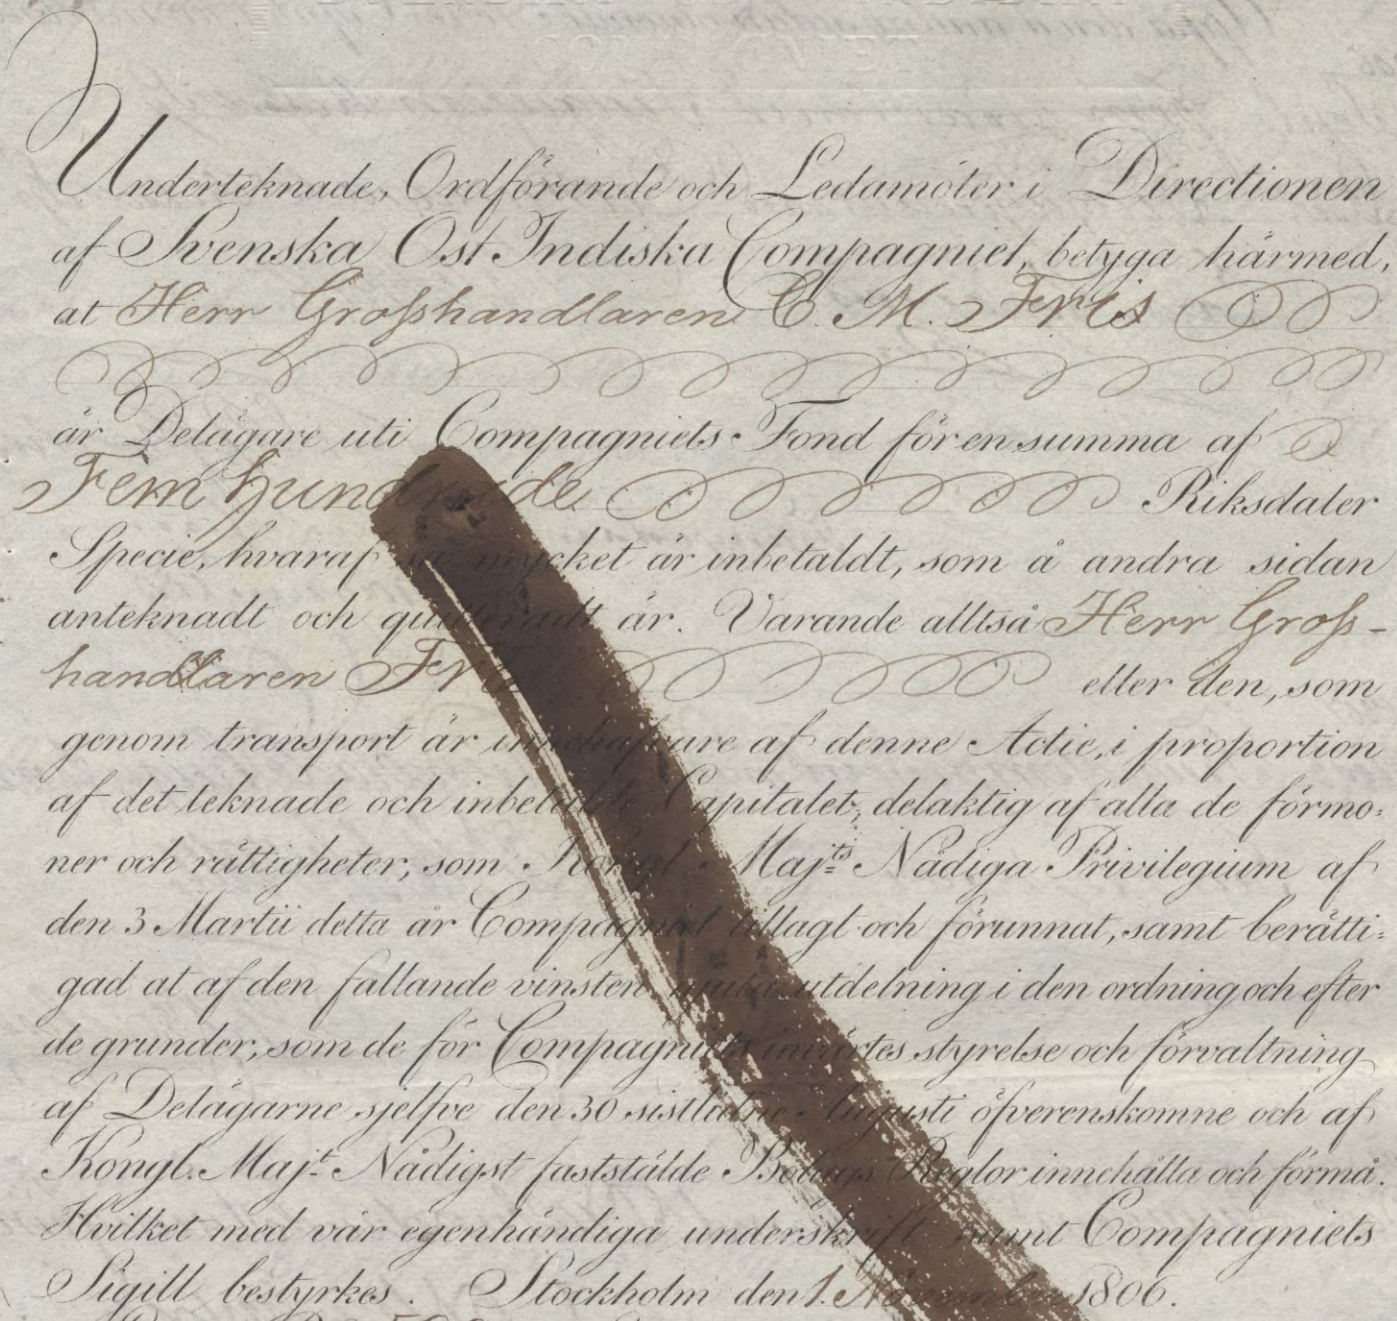 Underteknade, Ordförande och Ledamöter i Directionen
af Svenska Ost Indiska Compagniet, betyga härmed,
at Herr Grosshandlaren C. M. Fris
är Delägare uti Compagniets Fond för en summa af
Fem hundrade Riksdaler
Specie, hvaraf så mycket är inbetaldt, som å andra sidan
anteknadt och quitteradt är. Varande alltså Herr Gross-
handlaren Fris eller den, som
genom transport är innehafvare af denne Actie, i proportion
af det teknade och inbetalde Capitalet, delaktig af alla de förmo-
ner och rättigheter, som Kongl. Maj:ts Nådiga Privilegium af
den 3 Martii detta år Compagniet tillagt och förunnat, samt berätti-
gad at af den fallande vinsten njuta utdelning i den ordning och efter
de grunder, som de för Compagniets inwärtes styrelse och förvaltning
af Delägarne sjelfve den 30 sistlidne Augusti öfverenskomne och af
Kongl. Maj:t Nådigst faststälde Bolags Reglor innehålla och förmå.
Hvilket med vår egenhändiga underskrift samt Compagniets
Sigill bestyrkes. Stockholm den 1. November 1806.